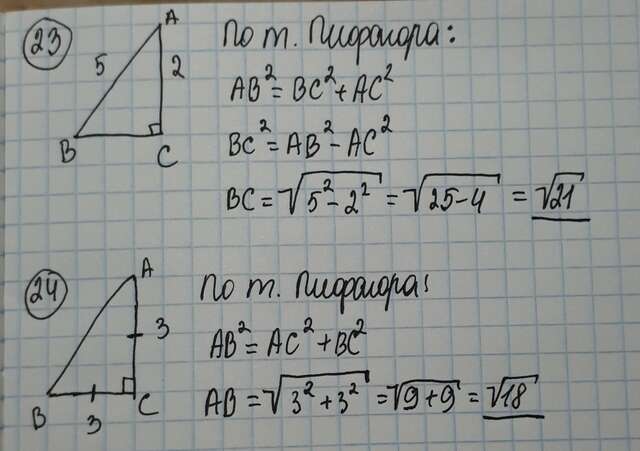 23
A
5
2
B
C
По т. Пифагора:
AB² = BC² + AC²
BC² = AB² − AC²
BC = √5² − 2² = √25−4 = √21
24
A
3
B
3
C
По т. Пифагора:
AB² = AC² + BC²
AB = √3² + 3² = √9+9 = √18